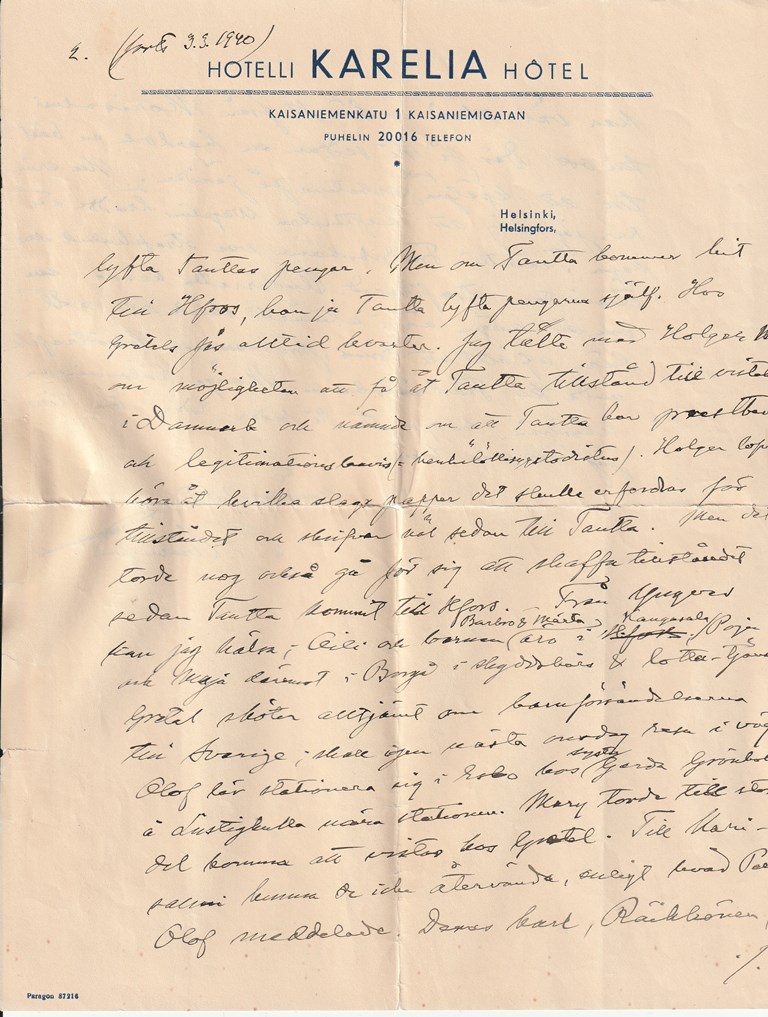 2. (forts 3.3.1940)
HOTELLI KARELIA HÔTEL
KAISANIEMENKATU 1 KAISANIEMIGATAN
PUHELIN 20016 TELEFON
Helsinki,
Helsingfors,
lyfta Tanttas pengar. Men om Tantta kommer hit
till Hfors, kan ju Tantta lyfta pengarna själf. Hos
Gretels fås alltid kvarter. Jag talte med Holger
om möjligheten att få åt Tantta tillstånd till vistel
i Danmark och nämnde om att Tantta har
och legitimationsbevis (= henkilöllisyystodistus). Holger
höra åt hvilka slags papper det skulle erfordras för
tillståndet och skrifver väl sedan till Tantta. Men det
torde nog också gå för sig att skaffa tillståndet
sedan Tantta kommit till Hfors. Från Yngves
Barbro & Märta Kangasala
kan jag hälsa; Cili och barnen (äro i Hfors. Pojen
och Maja däremot i Borgå i skyddskårs & lotta-tjäns
Gretel sköter alltjämt om barnförsändelserna
till Sverige; skall igen nästa onsdag resa i väg
Olof lär stationera sig i Esbo hos Gerda Grönhol
å Lustigkulla nära stationen. Mary torde till stor
del komma att vistas hos Gretel. Till Kari-
salmi kunna de icke återvända, enligt hvad
Olof meddelade. Deras kart, Räikkönen,
./.
Paragon 57216